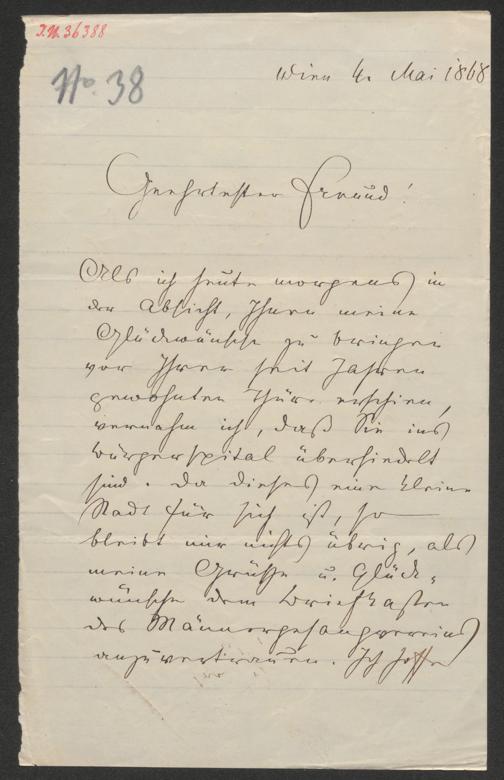 I.N. 36388
No. 38
Wien 4. Mai 1868
Geehrtester Freund!
Als ich heute morgens in
der Absicht, Ihnen meine
Glückwünsche zu bringen
vor Ihrer seit Jahren
gewohnten Thüre erschien,
vernahm ich, daß Sie ins
Bürgerspital übersiedelt
sind. Da dieses eine kleine
Stadt für sich ist, so
bleibt mir nichts übrig, als
meine Grüße u. Glück-
wünsche dem Briefkasten
des Männergesangvereins
anzuvertrauen. Ich hoffe